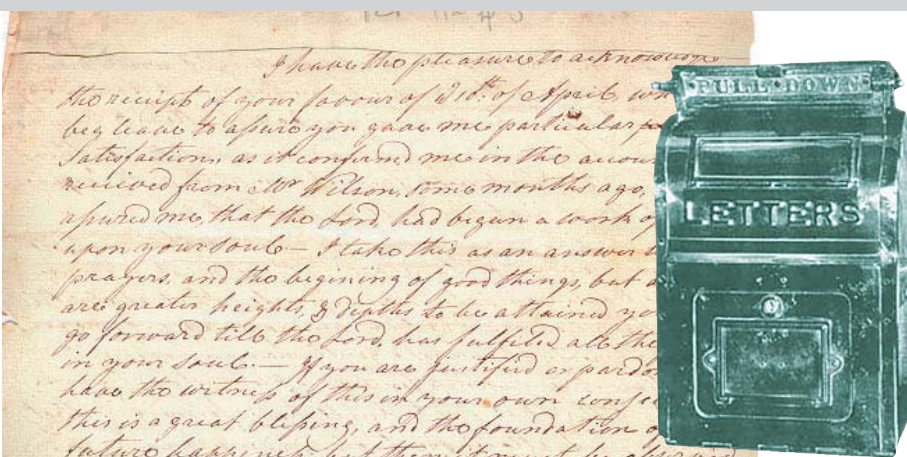 I have the pleasure to acknowledge
the reciept of your favour of 210th of April, wh
beg leave to assure you gave me particular
Satisfaction, as it confirmd me in the accou
recieved from Mr Wilson, some months ago,
assured me, that the Lord, had begun a work of
upon your Soul — I take this as an answer t
prayers, and the begining of good things, but
are greater heights, & depths to be attained yo
go forward till the Lord, has fulfiled all the
in your Soul. — If you are justified or pardo
have the witness of this in your own consc
this is a great blessing, and the foundation of
future happiness, but then it must be observed
PULL DOWN
LETTERS